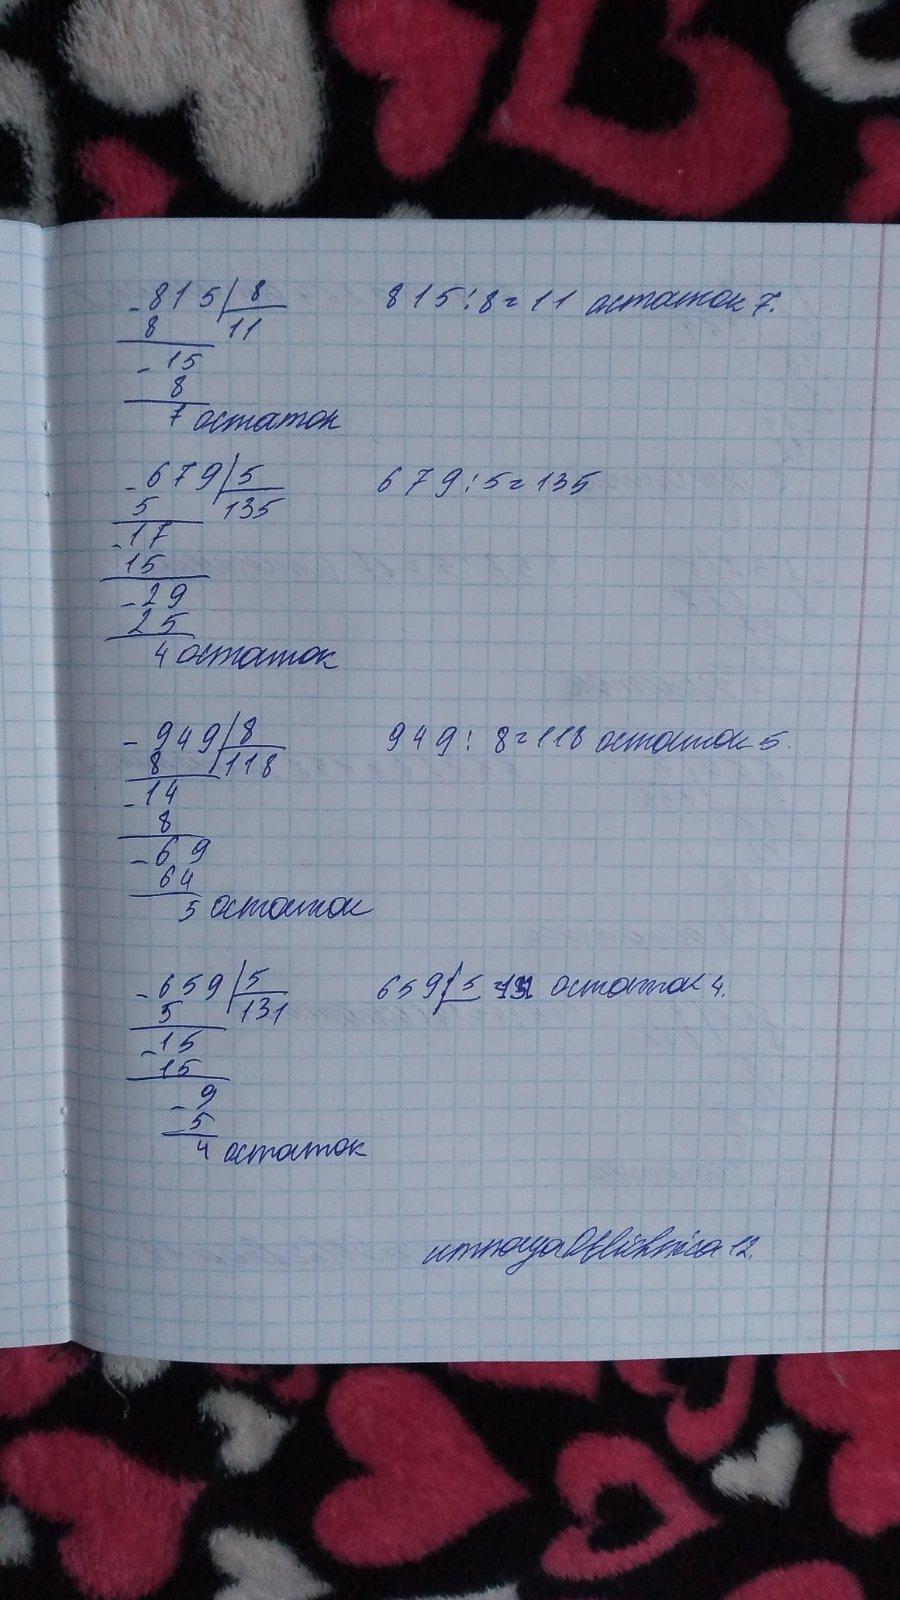 - 815 | 8 815 : 8 = 11 остаток 7.
8 11
- 15
8
7 остаток
- 679 | 5 679 : 5 = 135
5 135
- 17
15
- 29
25
4 остаток
- 949 | 8 949 : 8 = 118 остаток 5.
8 118
- 14
8
- 69
64
5 остаток
- 659 | 5 659 | 5 = 131 остаток 4.
5 131
- 15
15
- 9
5
4 остаток
12.